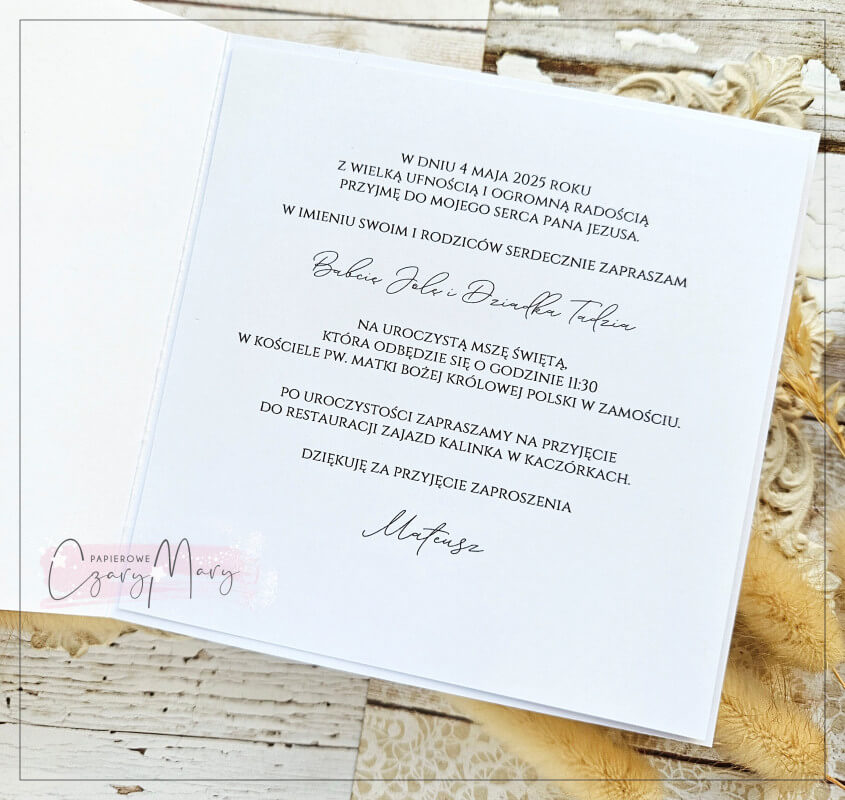 W DNIU 4 MAJA 2025 ROKU
Z WIELKĄ UFNOŚCIĄ I OGROMNĄ RADOŚCIĄ
PRZYJMĘ DO MOJEGO SERCA PANA JEZUSA.
W IMIENIU SWOIM I RODZICÓW SERDECZNIE ZAPRASZAM
Babcię Jolę i Dziadka Tadzia
NA UROCZYSTĄ MSZĘ ŚWIĘTĄ,
KTÓRA ODBĘDZIE SIĘ O GODZINIE 11:30
W KOŚCIELE PW. MATKI BOŻEJ KRÓLOWEJ POLSKI W ZAMOŚCIU.
PO UROCZYSTOŚCI ZAPRASZAMY NA PRZYJĘCIE
DO RESTAURACJI ZAJAZD KALINKA W KACZÓRKACH.
DZIĘKUJĘ ZA PRZYJĘCIE ZAPROSZENIA
Mateusz
PAPIEROWE
Czary Mary